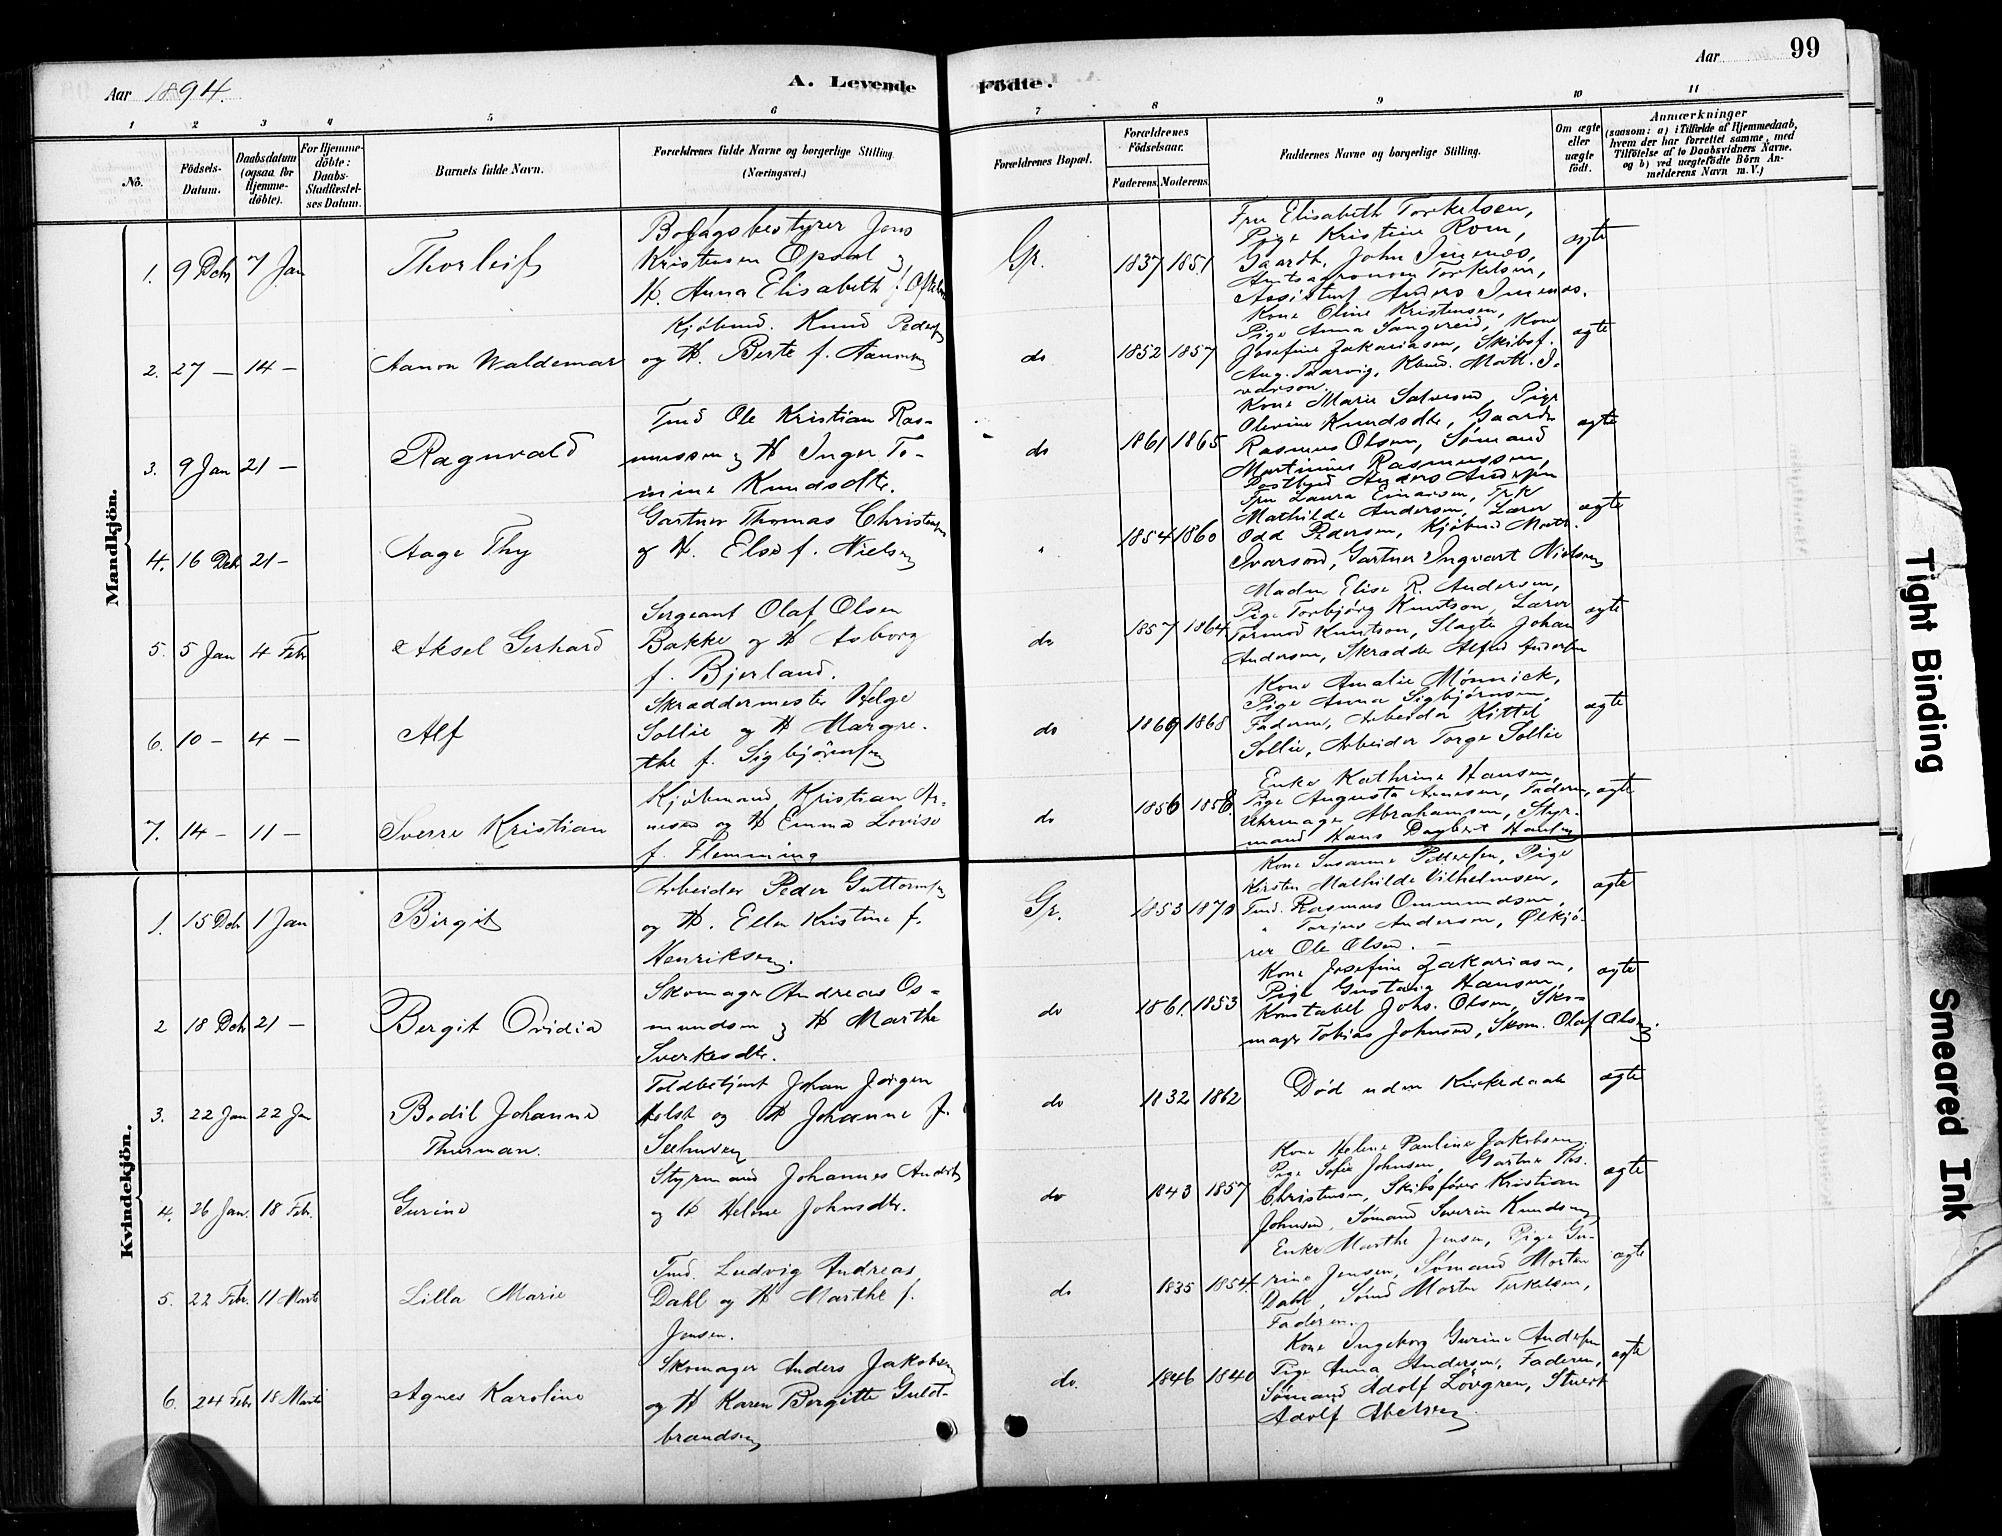 Aar 1894.
A. Levende Födte.
Aar
99
1 2 3 4 5 6 7 8 9 10 11
No.
Födsels-Datum.
Daabsdatum (ogsaa for Hjemme-döbte).
For Hjemme-döbte: Daabs-Stadfæstel-ses Datum.
Barnets fulde Navn.
Forældrenes fulde Navne og borgerlige Stilling.
(Næringsvei.)
Forældrenes Bopæl.
Forældrenes Födselsaar.
Faderens. Moderens.
Faddernes Navne og borgerlige Stilling.
Om ægte eller uægte födt.
Anmærkninger
(saasom: a) i Tilfælde af Hjemmedaab,
hvem der har forrettet samme, med
Tilföielse af to Daabsvidners Navne.
og b) ved uægtefödte Börn An-
melderens Navn m. V.)
Mandkjön.
1. 9 Dcbr 7 Jan
Thorleif
Bolagsbestyrer Jens
Kristensen Opdal og
H. Anna Elisabeth f.
Gr.
1837 1851
Fru Elisabeth Torkelsen,
Pige Kristine Rom,
Gaardb. John Imenes,
Amtsagronom Torkelsen,
Assistent Anders Imenes.
ægte
2. 27 — 14 —
Aanon Waldemar
Kjöbmd. Knud Peders
og H. Berte f. Aanons
do
1852 1857
Kone Oline Kristensen,
Pige Anna Sangereid, Kone
Josefine Zakariasen, Skibsf.
Aug. Taarvig, Kbmd. Math. I-
varson.
ægte
3. 9 Jan 21 —
Ragnvald
Tmd Ole Kristian Ras-
mussen og H Inger To-
mine Knudsdtr.
do
1861 1865
Kone Marie Salvesen, Pige
Olevine Knudsdtr, Gaardb
Rasmus Olsen, Sömand
Martinius Rasmussen,
Postbud Anders Andersen
ægte
4. 16 Dcbr 21 —
Aage Thy
Gartner Thomas Christensen
og H. Else f. Nielsen
"
1854 1860
Fru Laura Einarsen, Frk
Mathilde Andersen, Lærer
Odd Pedersen, Kjöbmd Math.
Ivarson, Gartner Ingvart Nielsen
ægte
5. 5 Jan 4 Febr
Aksel Gerhard
Sergeant Olaf Olsen
Bakke og H Asborg
f. Bjerland.
do
1857 1864
Madm Elise R. Andersen,
Pige Torbjörg Knutson, Lærer
Tormod Knutson, Slagter Johan
Andersen, Skrædder Alfred Andersen
ægte
6. 10 — 4 —
Alf
Skræddermester Helge
Sollie og H Margre-
the f. Sigbjörnsen
do
1869 1868
Kone Amalie Mönnick,
Pige Anna Sigbjörnsen,
Faderen, Arbeider Kittel
Sollie, Arbeider Torge Sollie
ægte
7. 14 — 11 —
Sverre Kristian
Kjöbmand Kristian Ar-
nesen og H Emma Lovise
f. Flemming
do
1856 1858.
Enke Kathrine Hansen,
Pige Augusta Arnesen, Faderen,
Uhrmager Abrahamsen, Styr-
mand Hans Dagbert Hansen
ægte
Kvindekjön.
1. 15 Dcbr 1 Jan
Birgit
Arbeider Peder Guttormsen
og H. Ellen Kristine f.
Henriksen.
Gr.
1853 1870
Kone Susanne Pettersen, Pige
Kirsten Mathilde Vilhelmsen,
Tmd. Rasmus Ommundsen,
" Torjus Andersen, Ölkjö-
rer Ole Olsen. —
ægte
2 18 Dcbr 21 —
Bergit Ovidia
Skomager Andreas Os-
mundsen og H Marthe
Sverkesdtr.
do
1861 1853
Kone Josefine Zakariasen,
Pige Gustavig Hansen,
Konstabel Johs. Olsen, Sko-
mager Tobias Johnsen, Skom. Olaf Olsen.
ægte
3. 22 Jan 22 Jan
Bodil Johanne
Thurman.
Toldbetjent Johan Jörgen
Holst og H Johanne f.
do
1832 1862
Död uden Kirkedaab
ægte
4. 26 Jan. 18 Febr.
Gurine
Styrmand Johannes Anders
og H Helene Johnsdtr.
do
1843 1857
Kone Helene Pauline Jakobsen,
Pige Sofie Johnsen, Gartner Ths.
Christensen, Skibsförer Kristian
Johnsen, Sömand Severin Knudsen
ægte
5. 22 Febr. 11 Marts
Lilla Marie
Tmd. Ludvig Andreas
Dahl og H Marthe f.
Jensen.
do
1835 1854.
Enke Marthe Jensen, Pige Gu-
rine Jensen, Sömand Morten
Dahl, Sömd Morten Terkelsen,
Faderen.
ægte
6. 24 Febr 18 Marts
Agnes Karoline
Skomager Anders Jakobsen
og H Karen Bergitte Guld-
brandsen
do.
1846 1840
Kone Ingeborg Gurine Andersen
Pige Anna Andersen, Faderen,
Sömand Adolf Lövgren, Stuert
Adolf Abelsen
ægte
Tight Binding
Smeared Ink